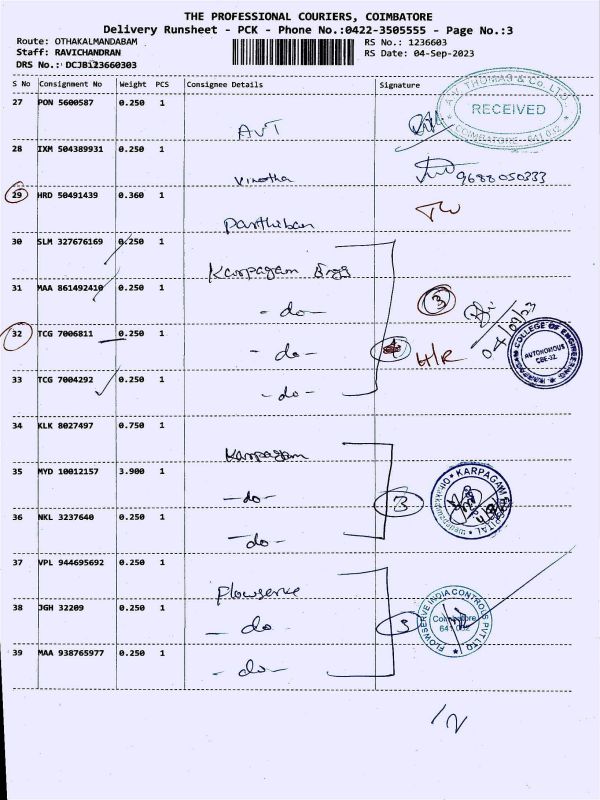 THE PROFESSIONAL COURIERS, COIMBATORE
Delivery Runsheet - PCK - Phone No.:0422-3505555 - Page No.:3
Route: OTHAKALMANDABAM
RS No.: 1236603
Staff: RAVICHANDRAN
RS Date: 04-Sep-2023
DRS No.: DCJB123660303
S No Consignment No Weight PCS Consignee Details Signature
27 PON 5600587 0.250 1 AVT
A.V. THOMAS & Co. LTD. RECEIVED COIMBATORE - 641 042
28 IXM 504389931 0.250 1 Vinotha 9688050333
29 HRD 50491439 0.360 1 Parthiban
30 SLM 327676169 0.250 1 Karpagam Engg
31 MAA 861492410 0.250 1 -do- 3
04/09/23
32 TCG 7006811 0.250 1 -do- H/R
KARPAGAM COLLEGE OF ENGINEERING AUTONOMOUS CBE-32
33 TCG 7004292 0.250 1 -do-
34 KLK 8027497 0.750 1 Karpagam
35 MYD 10012157 3.900 1 -do- 3
KARPAGAM HOSPITAL
36 NKL 3237640 0.250 1 -do-
37 VPL 944695692 0.250 1 Flowserve
38 JGH 32209 0.250 1 -do- 3
FLOWSERVE INDIA CONTROLS PVT LTD Coimbatore
39 MAA 938765977 0.250 1 -do-